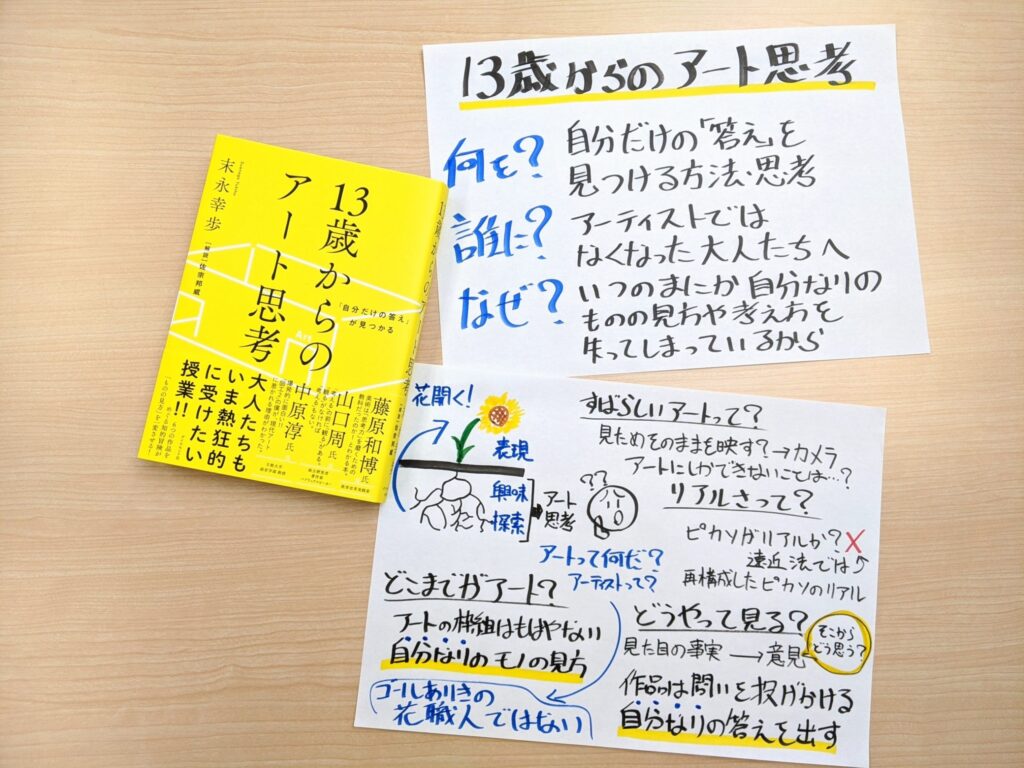 末永幸歩
[解説]佐宗邦威
13歳からの
アート思考
「自分だけの答え」
が見つかる
Art
大人たちも
いま熱狂的
に受けたい
授業!!
藤原和博氏
山口周氏
中原淳氏
13歳からのアート思考
何を? 自分だけの「答え」を
見つける方法・思考
誰に? アーティストでは
なくなった大人たちへ
なぜ? いつのまにか自分なりの
ものの見方や考え方を
失ってしまっているから
花開く!
表現
興味
探索
アート
思考
??
アートって何だ?
アーティストって?
どこまでがアート?
アートの枠組はもはやない
自分なりのモノの見方
ゴールありきの
花職人ではない
すばらしいアートって?
見ためそのままを映す?→カメラ
アートにしかできないことは…?
リアルさって?
ピカソがリアルか?×
遠近法では
再構成したピカソのリアル
どうやって見る?
見た目の事実→意見
そこから
どう思う?
作品は問いを投げかける
自分なりの答えを出す